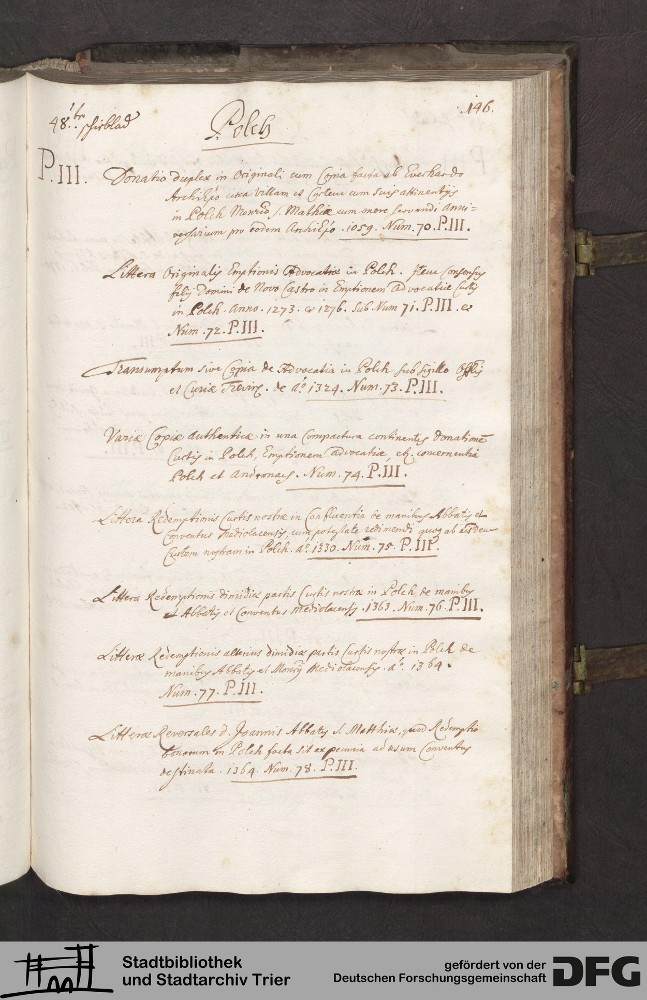 146.
48.
Polch
P.III. Donatio duplex in Originali cum Copia facta ab Everhardo
ArchiEpo villam et Curtem cum suis attinentijs
in Polch S. Mathiæ cum onere servandi Anni-
versarium pro eodem ArchiEpo. 1059. Num. 70. P.III.
Littera Originalis Emptionis Advocatiæ in Polch. Item Consensus
filij Domini de Novo Castro in Emptionem advocatiæ Curtis
in Polch. Anno. 1273. & 1276. Sub Num 71. P.III. &
Num. 72. P.III.
Transumptum sive Copia de Advocatia in Polch sub sigillo
et Curiæ Trevir. de aº. 1324. Num. 73. P.III.
Variæ Copiæ authenticæ in una Compactura continentes donationem
Curtis in Polch, Emptionem advocatiæ, concernentia
Polch et Andernach. Num. 74. P.III.
Littera Redemptionis Curtis nostræ in Confluentia de manibus Abbatis et
Conventus Mediolacensis, cum potestate redimendi quoq ab eisdem
Curtem nostram in Polch. aº. 1330. Num. 75. P.III.
Littera Redemptionis dimidiæ partis Curtis nostræ in Polch de manibus
Abbatis et Conventus Mediolacensis. 1363. Num. 76. P.III.
Litteræ Redemptionis alterius dimidiæ partis Curtis nostræ in Polch de
manibus Abbatis et Mediolacensis. aº. 1364.
Num. 77. P.III.
Litteræ Reversales d. Joannis Abbatis S. Matthiæ, quod Redemptio
bonorum in Polch facta sit ex pecunia ad usum Conventus
destinata. 1364. Num. 78. P.III.
Stadtbibliothek
und Stadtarchiv Trier
gefördert von der
Deutschen Forschungsgemeinschaft
DFG